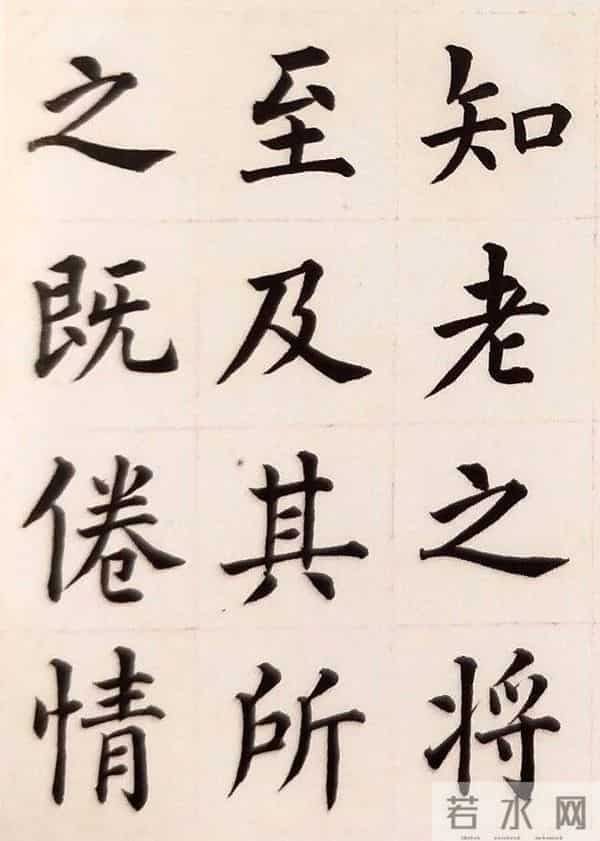 知老之将
至及其所
之既倦情
若水网